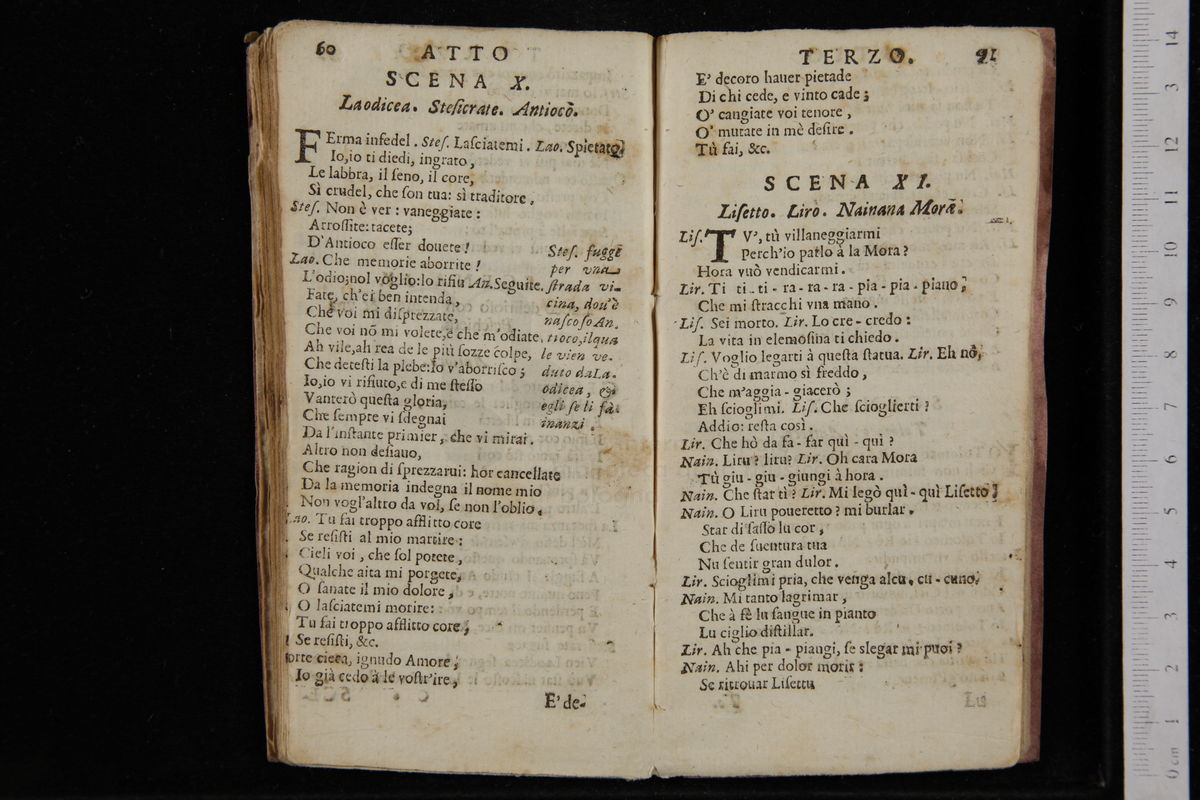 60 ATTO
SCENA X.
Laodicea. Steſicrate. Antioco.
FErma infedel. Steſ. Laſciatemi. Lao. Spietato,
Io,io ti diedi, ingrato,
Le labbra, il ſeno, il core,
Sì crudel, che ſon tua: sì traditore,
Steſ. Non è ver: vaneggiate:
Arroſſite: tacete;
D'Antioco eſſer douete!
Lao. Che memorie aborrite!
L'odio;nol voglio:lo rifiu An.Seguite.
Fate, ch'ei ben intenda,
Che voi mi diſprezzate,
Che voi nõ mi volete,e che m'odiate,
Ah vile,ah rea de le più ſozze colpe,
Che deteſti la plebe:Io v'aborriſco;
Io,io vi rifiuto,e di me ſteſſo
Vanterò queſta gloria,
Che ſempre vi ſdegnai
Da l'inſtante primier, che vi mirai.
Altro non deſiauo,
Che ragion di ſprezzarui: hor cancellate
Da la memoria indegna il nome mio
Non vogl'altro da voi, ſe non l'oblio.
Steſ. fuggẽ
per vna
ſtrada vi-
cina, dou'è
naſcoſo An.
tioco,ilqua
le vien ve-
duto daLa-
odicea, &
egli ſe li fà
inanzi.
Lao. Tu fai troppo afflitto core
Se reſiſti al mio martire:
Cieli voi, che ſol potete,
Qualche aita mi porgete,
O ſanate il mio dolore,
O laſciatemi morire:
Tu fai troppo afflitto core,
Se reſiſti, &c.
orte cieca, ignudo Amore,
Io già cedo à le voſtr'ire,
E' de-
TERZO. 91
E' decoro hauer pietade
Di chi cede, e vinto cade;
O' cangiate voi tenore,
O' mutate in mè deſire.
Tù fai, &c.
SCENA XI.
Liſetto. Lirò. Nainana Morã.
Liſ. TV', tù villaneggiarmi
Perch'io parlo à la Mora?
Hora vuò vendicarmi.
Lir. Ti ti - ti - ra - ra - ra - pia - pia - piano,
Che mi ſtracchi vna mano.
Liſ. Sei morto. Lir. Lo cre - credo:
La vita in elemoſina ti chiedo.
Liſ. Voglio legarti à queſta ſtatua. Lir. Eh nò,
Ch'è di marmo sì freddo,
Che m'aggia - giacerò;
Eh ſcioglimi. Liſ. Che ſcioglierti?
Addio: reſta così.
Lir. Che hò da fa - far quì - quì?
Nain. Liru? liru? Lir. Oh cara Mora
Tù giu - giu - giungi à hora.
Nain. Che ſtar tì? Lir. Mi legò quì - quì Liſetto,
Nain. O Liru poueretto? mi burlar.
Star di ſaſſo lu cor,
Che de ſuentura tua
Nu ſentir gran dulor.
Lir. Scioglimi pria, che venga alcu. cu - cuno.
Nain. Mi tanto lagrimar,
Che à fè lu ſangue in pianto
Lu ciglio diſtillar.
Lir. Ah che pia - piangi, ſe slegar mi puoi?
Nain. Ahi per dolor morir:
Se ritrouar Liſettu
Lu